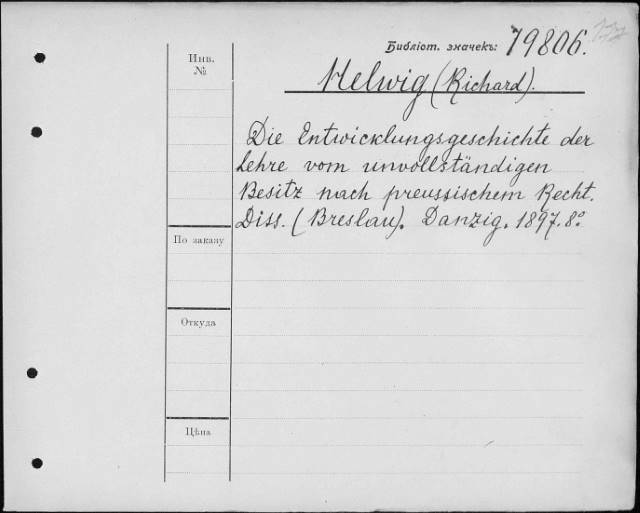 Библіот. значекъ: 79806.
Инв.
№
Helwig (Richard).
Die Entwicklungsgeschichte der
Lehre vom unvollständigen
Besitz nach preussischem Recht.
Diss. (Breslau). Danzig. 1897. 8º
По заказу
Откуда
Цѣна